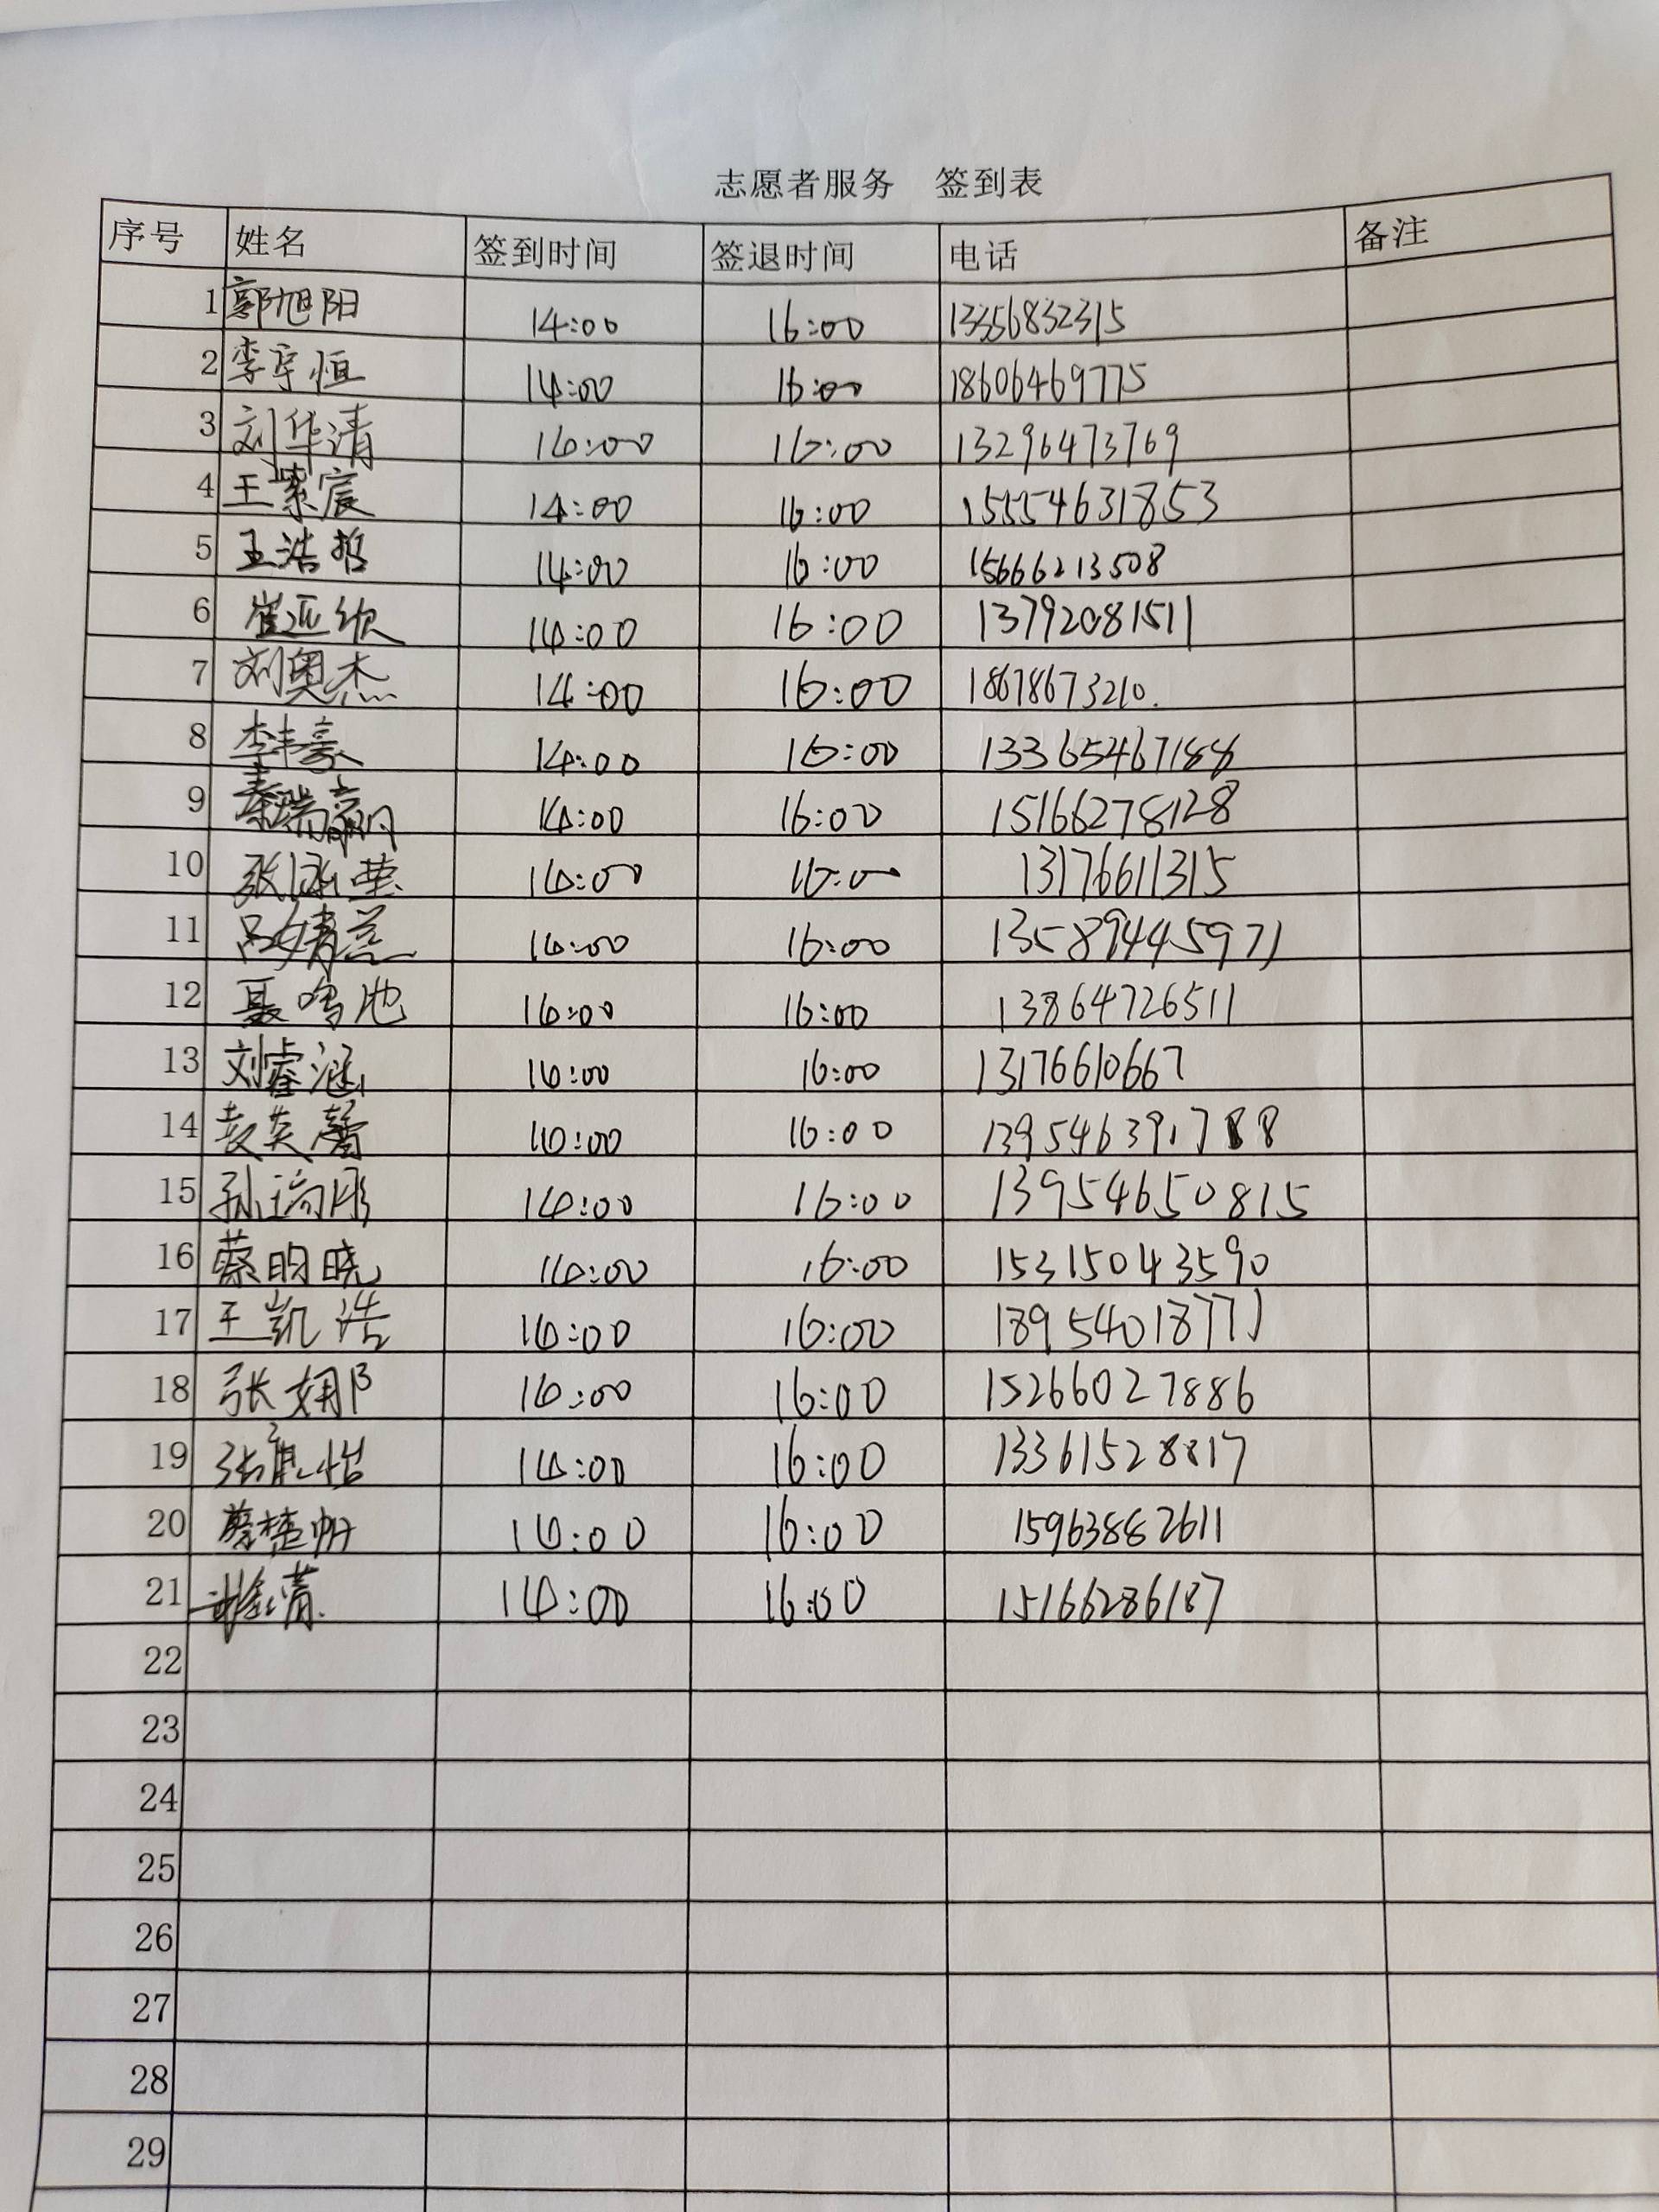 志愿者服务 签到表
序号 姓名 签到时间 签退时间 电话 备注
1 郭旭阳 14:00 16:00 13356832315
2 李宇恒 14:00 16:00 18606469775
3 刘华清 14:00 16:00 13296473769
4 王紫宸 14:00 16:00 15554631853
5 王浩哲 14:00 16:00 15666213508
6 崔亚欣 14:00 16:00 13792081511
7 刘奥杰 14:00 16:00 18678673210
8 李韦豪 14:00 16:00 13365467188
9 秦瑞赢 14:00 16:00 15166278128
10 14:00 16:00 13176611315
11 吕婧蕊 14:00 16:00 13589445971
12 聂鸣池 14:00 16:00 13864726511
13 刘睿涵 14:00 16:00 13176610667
14 袁英馨 14:00 16:00 13954639788
15 孙琦彤 14:00 16:00 13954650815
16 蔡昀晓 14:00 16:00 15315043590
17 王凯浩 14:00 16:00 18954018771
18 张娜 14:00 16:00 15266027886
19 14:00 16:00 13361528817
20 蔡楚帆 14:00 16:00 15963882611
21 14:00 16:00 15166286187
22
23
24
25
26
27
28
29